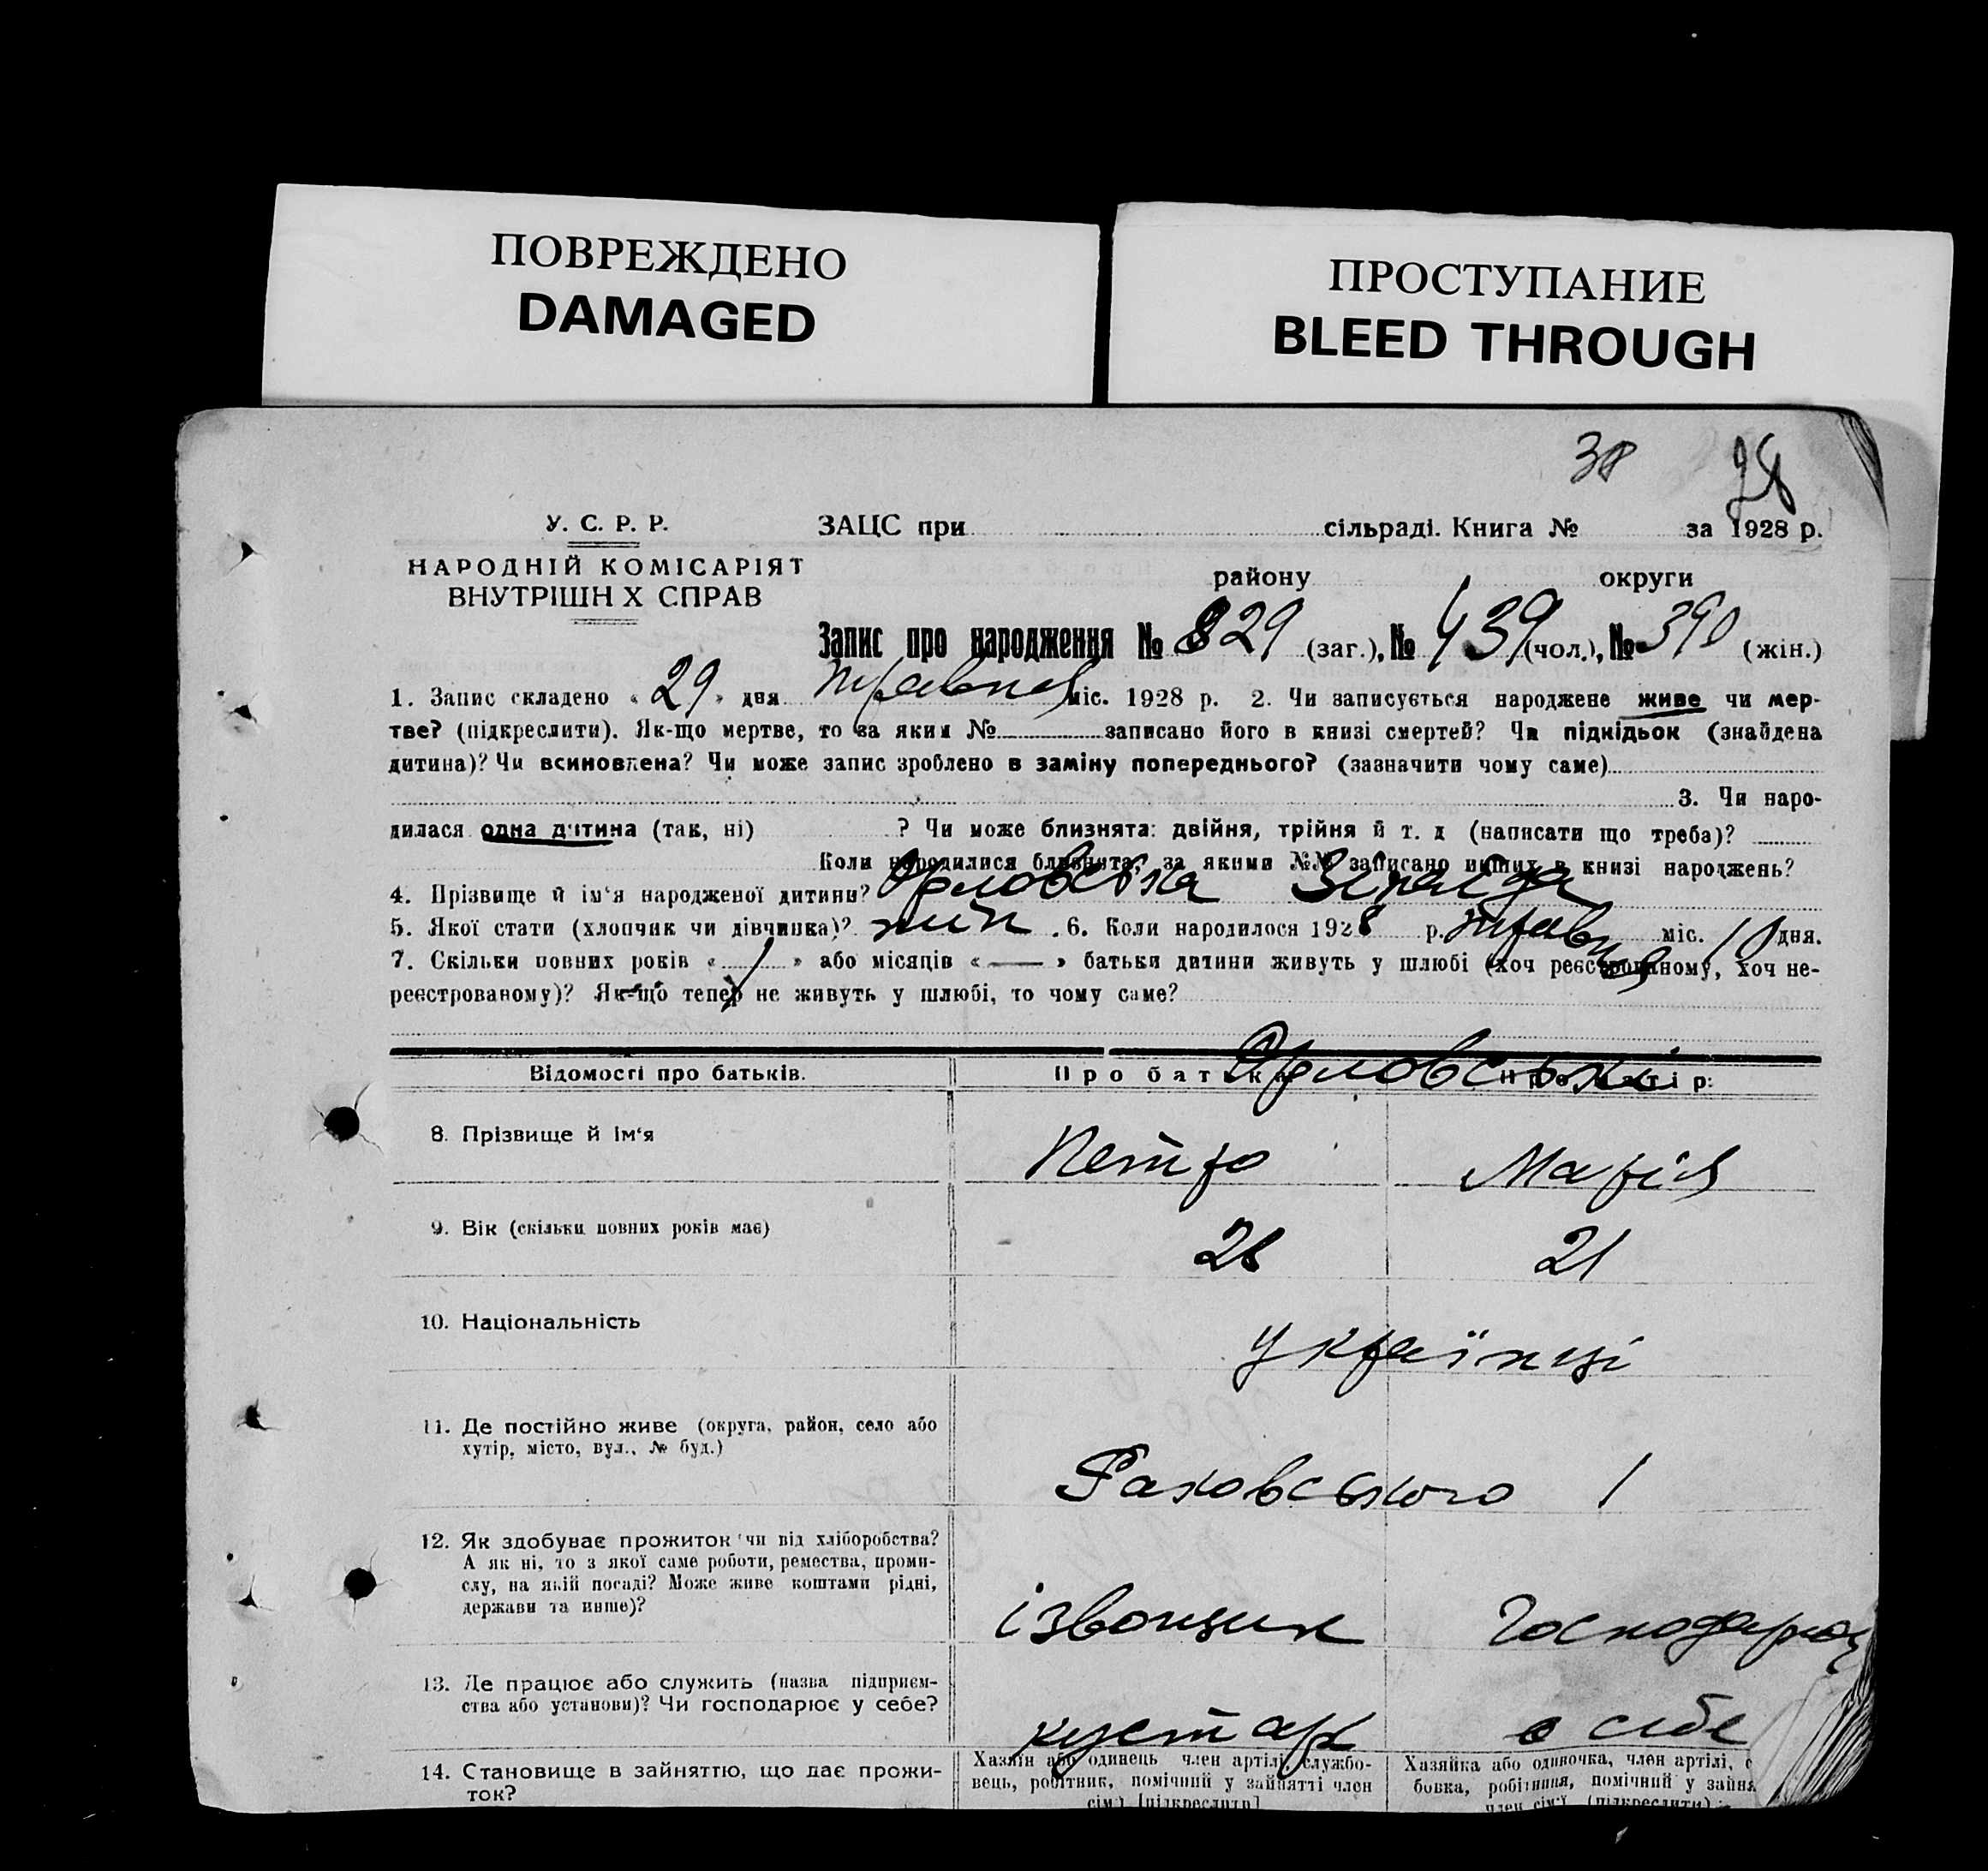 ПОВРЕЖДЕНО
DAMAGED
ПРОСТУПАНИЕ
BLEED THROUGH
38 28
У. С. Р. Р.
НАРОДНІЙ КОМІСАРІЯТ
ВНУТРІШН Х СПРАВ
ЗАЦС при сільраді. Книга № за 1928 р.
району округи
Запис про народження № 829 (заг.), № 439 (чол.), № 390 (жін.)
1. Запис складено « 29 » дня травня міс. 1928 р. 2. Чи записується народжене живе чи мер-
тве? (підкреслити). Як-що мертве, то за яким № записано його в книзі смертей? Чи підкідьок (знайдена
дитина)? Чи всиновлена? Чи може запис зроблено в заміну попереднього? (зазначити чому саме)
3. Чи наро-
дилася одна дитина (так, ні) ? Чи може близнята: двійня, трійня й т. д (написати що треба)?
Коли народилися близнята, за якими №№ записано инших в книзі народжень?
4. Прізвище й ім'я народженої дитини? Орловська Зінаїда
5. Якої стати (хлопчик чи дівчинка)? жін .6. Коли народилося 1928 р. травня міс. 10 дня.
7. Скільки повних років « 1 » або місяців « — » батьки дитини живуть у шлюбі (хоч реєстрованому, хоч не-
реєстрованому)? Як-що тепер не живуть у шлюбі, то чому саме?
Відомості про батьків. Про батька Про матір:
Орловські
8. Прізвище й ім'я Петро Марія
9. Вік (скільки повних років має) 26 21
10. Національність Українці
11. Де постійно живе (округа, район, село або
хутір, місто, вул., № буд.)
Раковського 1
12. Як здобуває прожиток чи від хліборобства?
А як ні, то з якої саме роботи, ремества, проми-
слу, на якій посаді? Може живе коштами рідні,
держави та инше)?
ізвощик
13. Де працює або служить (назва підприєм-
ства або установи)? Чи господарює у себе?
кустарь в себе
14. Становище в зайняттю, що дає прожи-
ток?
Хазяїн або одинець член артілі, службо-
вець, робітник, помічний у зайнятті член
сім'ї [підкреслити]
Хазяйка або одиночка, член артілі, с
бовка, робітниця, помічний у зайня
член сім'ї (підкреслити)